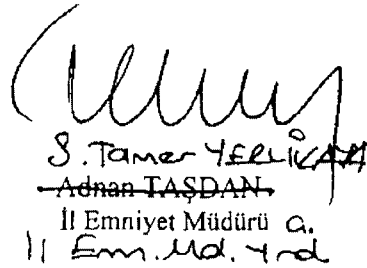 S. Tamer YERLİKAYA
Adnan TAŞDAN
İl Emniyet Müdürü a.
İl Em. Md. Yrd